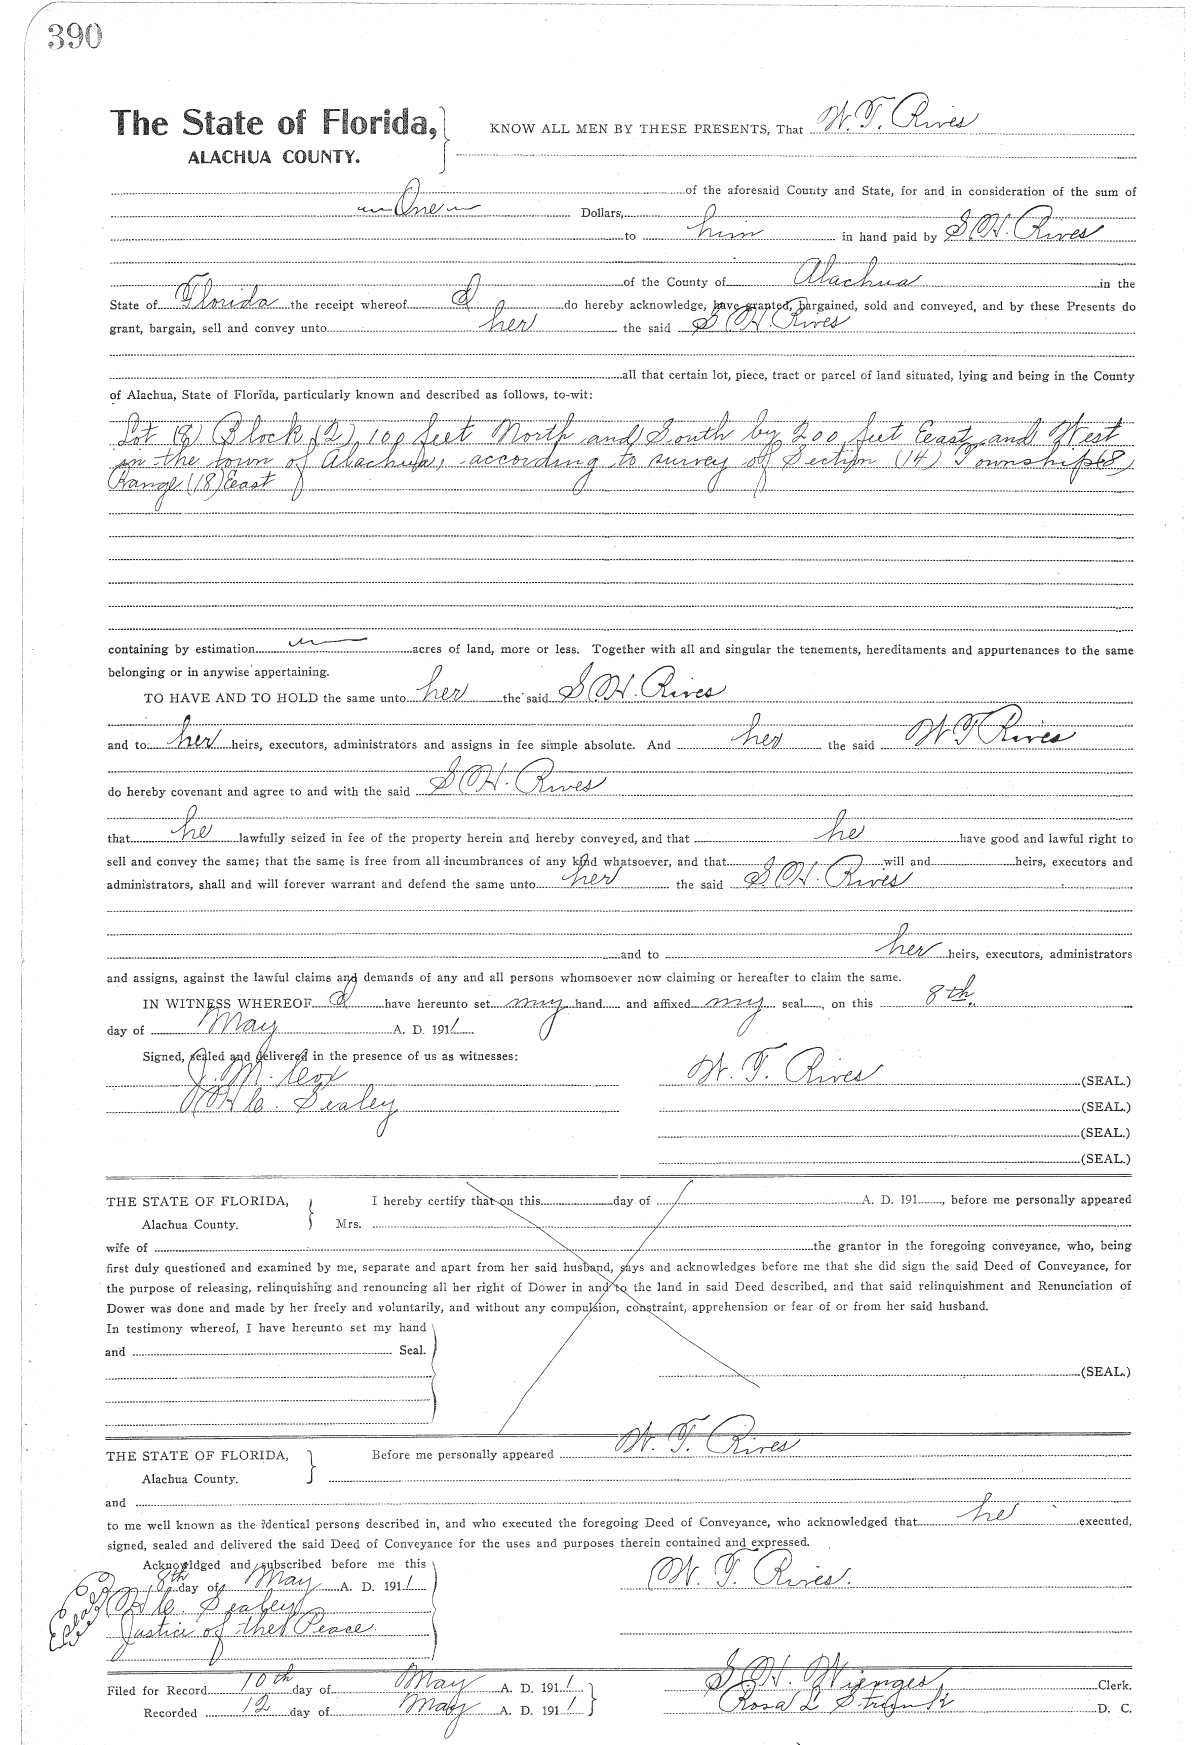 390
The State of Florida,
ALACHUA COUNTY.
KNOW ALL MEN BY THESE PRESENTS, That W. T. Rives
of the aforesaid County and State, for and in consideration of the sum of
One Dollars,
to him in hand paid by S. H. Rives
of the County of Alachua in the
State of Florida the receipt whereof I do hereby acknowledge, have granted, bargained, sold and conveyed, and by these Presents do
grant, bargain, sell and convey unto her the said S H. Rives
all that certain lot, piece, tract or parcel of land situated, lying and being in the County
of Alachua, State of Florida, particularly known and described as follows, to-wit:
Lot (8) Block (2), 100 feet North and South by 200 feet East and West
in the town of Alachua, according to survey of Section (14) Township
Range (18) East
containing by estimation acres of land, more or less. Together with all and singular the tenements, hereditaments and appurtenances to the same
belonging or in anywise appertaining.
TO HAVE AND TO HOLD the same unto her the said S. H. Rives
and to her heirs, executors, administrators and assigns in fee simple absolute. And her the said W T Rives
do hereby covenant and agree to and with the said S H. Rives
that he lawfully seized in fee of the property herein and hereby conveyed, and that he have good and lawful right to
sell and convey the same; that the same is free from all incumbrances of any kind whatsoever, and that will and heirs, executors and
administrators, shall and will forever warrant and defend the same unto her the said S. H. Rives
and to her heirs, executors, administrators
and assigns, against the lawful claims and demands of any and all persons whomsoever now claiming or hereafter to claim the same.
IN WITNESS WHEREOF I have hereunto set my hand and affixed my seal, on this 8th
day of May A. D. 1911
Signed, sealed and delivered in the presence of us as witnesses:
J. M. Cox W. T. Rives (SEAL.)
H C. Sealey (SEAL.)
(SEAL.)
(SEAL.)
THE STATE OF FLORIDA, I hereby certify that on this day of A. D. 191 , before me personally appeared
Alachua County. Mrs.
wife of the grantor in the foregoing conveyance, who, being
first duly questioned and examined by me, separate and apart from her said husband, says and acknowledges before me that she did sign the said Deed of Conveyance, for
the purpose of releasing, relinquishing and renouncing all her right of Dower in and to the land in said Deed described, and that said relinquishment and Renunciation of
Dower was done and made by her freely and voluntarily, and without any compulsion, constraint, apprehension or fear of or from her said husband.
In testimony whereof, I have hereunto set my hand
and Seal.
(SEAL.)
THE STATE OF FLORIDA, Before me personally appeared W. T. Rives
Alachua County.
and
to me well known as the identical persons described in, and who executed the foregoing Deed of Conveyance, who acknowledged that he executed,
signed, sealed and delivered the said Deed of Conveyance for the uses and purposes therein contained and expressed.
Acknowldged and subscribed before me this
8th day of May A. D. 1911 W. T. Rives.
H C. Sealey
Justice of the Peace
Filed for Record 10th day of May A. D. 1911 S. H. Wienges Clerk.
Recorded 12 day of May A. D. 1911 Rosa L D. C.